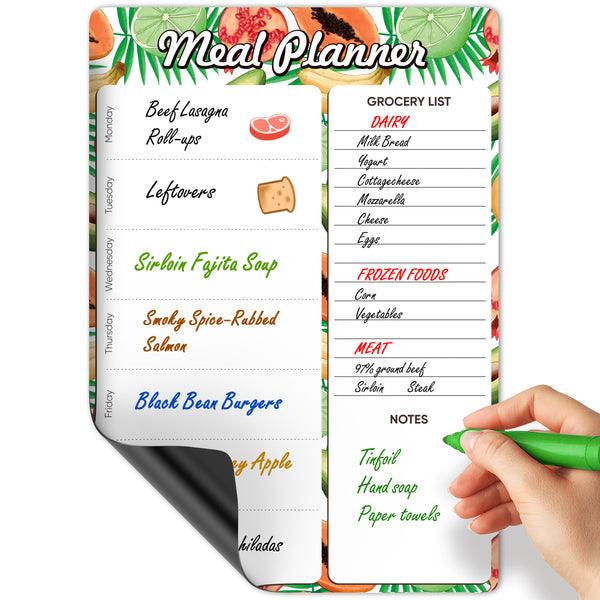 Meal Planner
Monday
Beef Lasagna
Roll-ups
Tuesday
Leftovers
Wednesday
Sirloin Fajita Soup
Thursday
Smoky Spice-Rubbed
Salmon
Friday
Black Bean Burgers
Apple
GROCERY LIST
DAIRY
Milk Bread
Yogurt
Cottagecheese
Mozzarella
Cheese
Eggs
FROZEN FOODS
Corn
Vegetables
MEAT
97% ground beef
Sirloin Steak
NOTES
Tinfoil
Hand soap
Paper towels